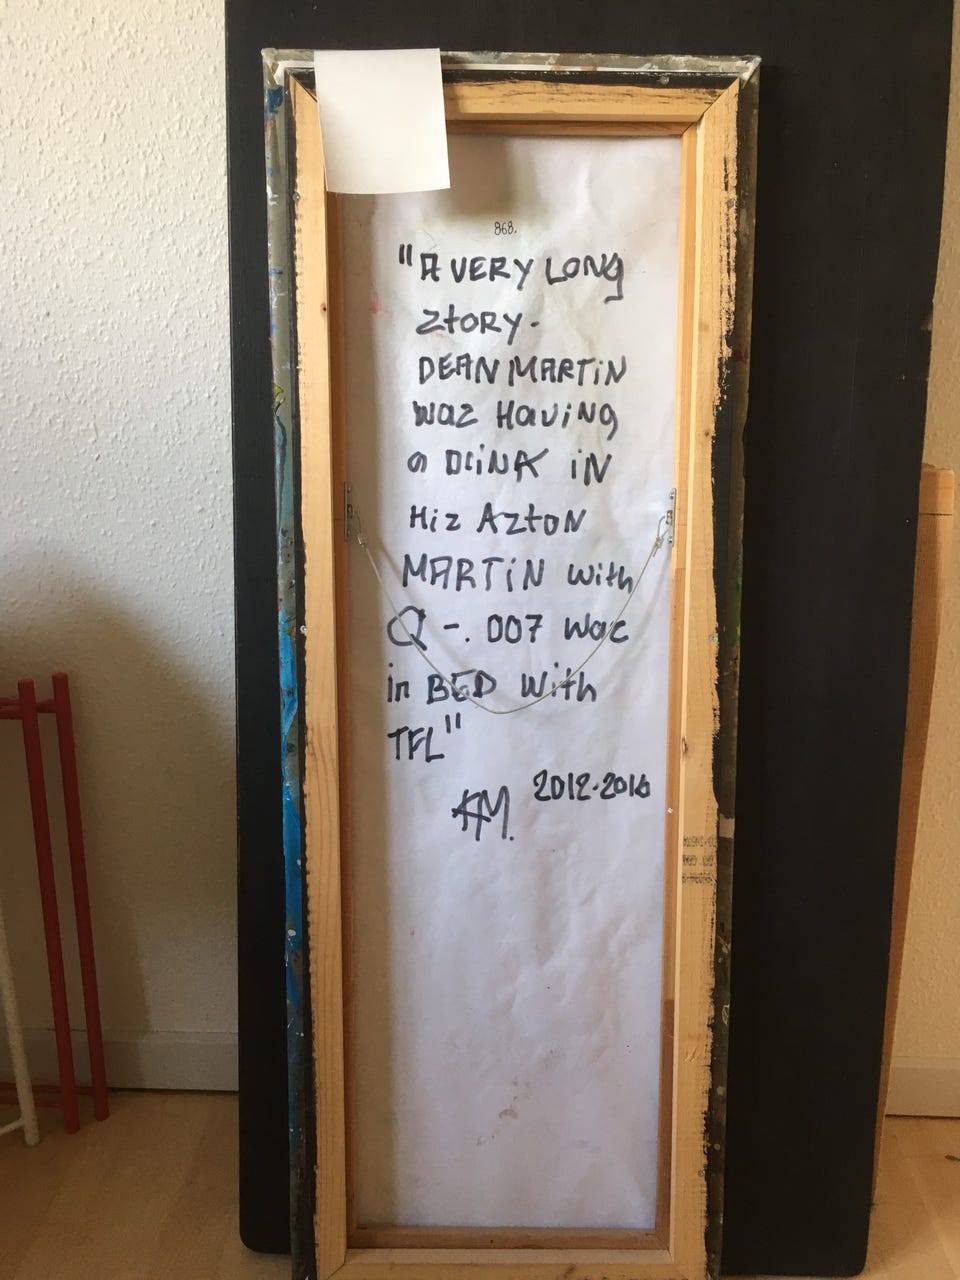 868.
"A VERY LONG
ZtORY-
DEAN MARTiN
WaZ HaViNG
a DRiNK iN
HiZ AZtON
MARTiN With
Q -. 007 Waz
in BED With
TFL"
2012-2016
KM.